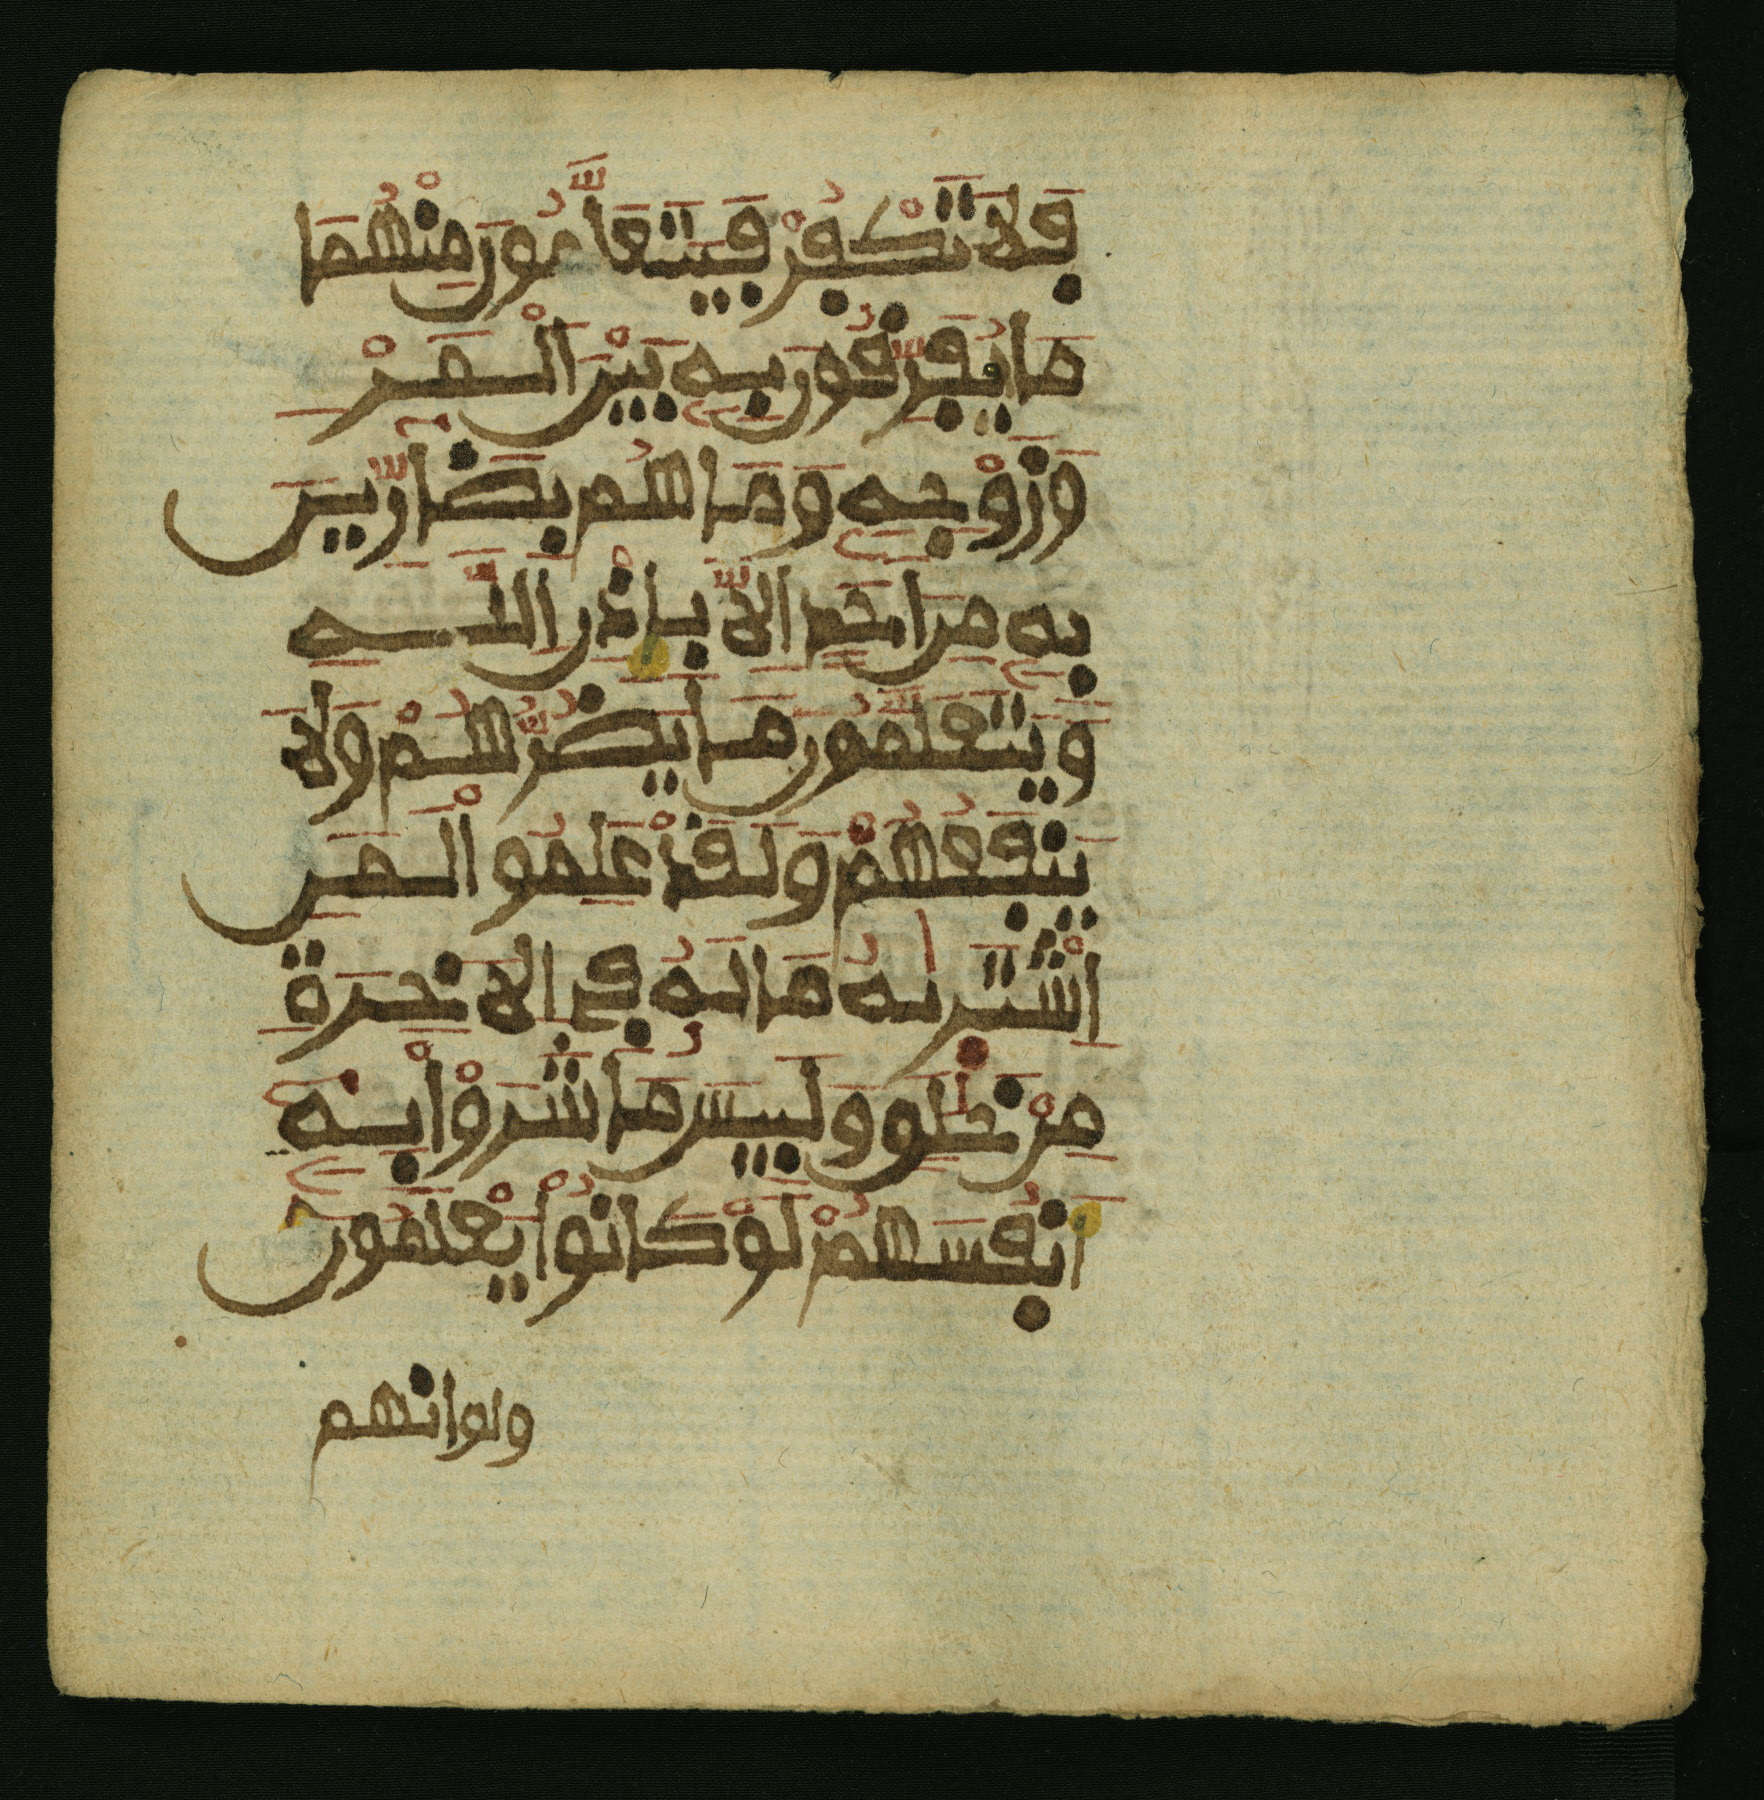 فَلَا تَكْفُرْ فَيَتَعَلَّمُونَ مِنْهُمَا
مَا يُفَرِّقُونَ بِهِ بَيْنَ الْمَرْءِ
وَزَوْجِهِ وَمَا هُم بِضَارِّينَ
بِهِ مِنَ احَدٍ الَّا بِإِذْنِ اللَّهِ
وَيَتَعَلَّمُونَ مَا يَضُرُّهُمْ وَلَا
يَنفَعُهُمْ وَلَقَدْ عَلِمُوا لَمَنِ
اشْتَرٰيهُ مَا لَهُ فِي الَاخِرَةِ
مِنْ خَلَٰقٍ وَلَبِيسَ مَا شَرَوْا بِهِ
أَنفُسَهُمْ لَوْ كَانُوا يَعْلَمُونَ
ولو انهم